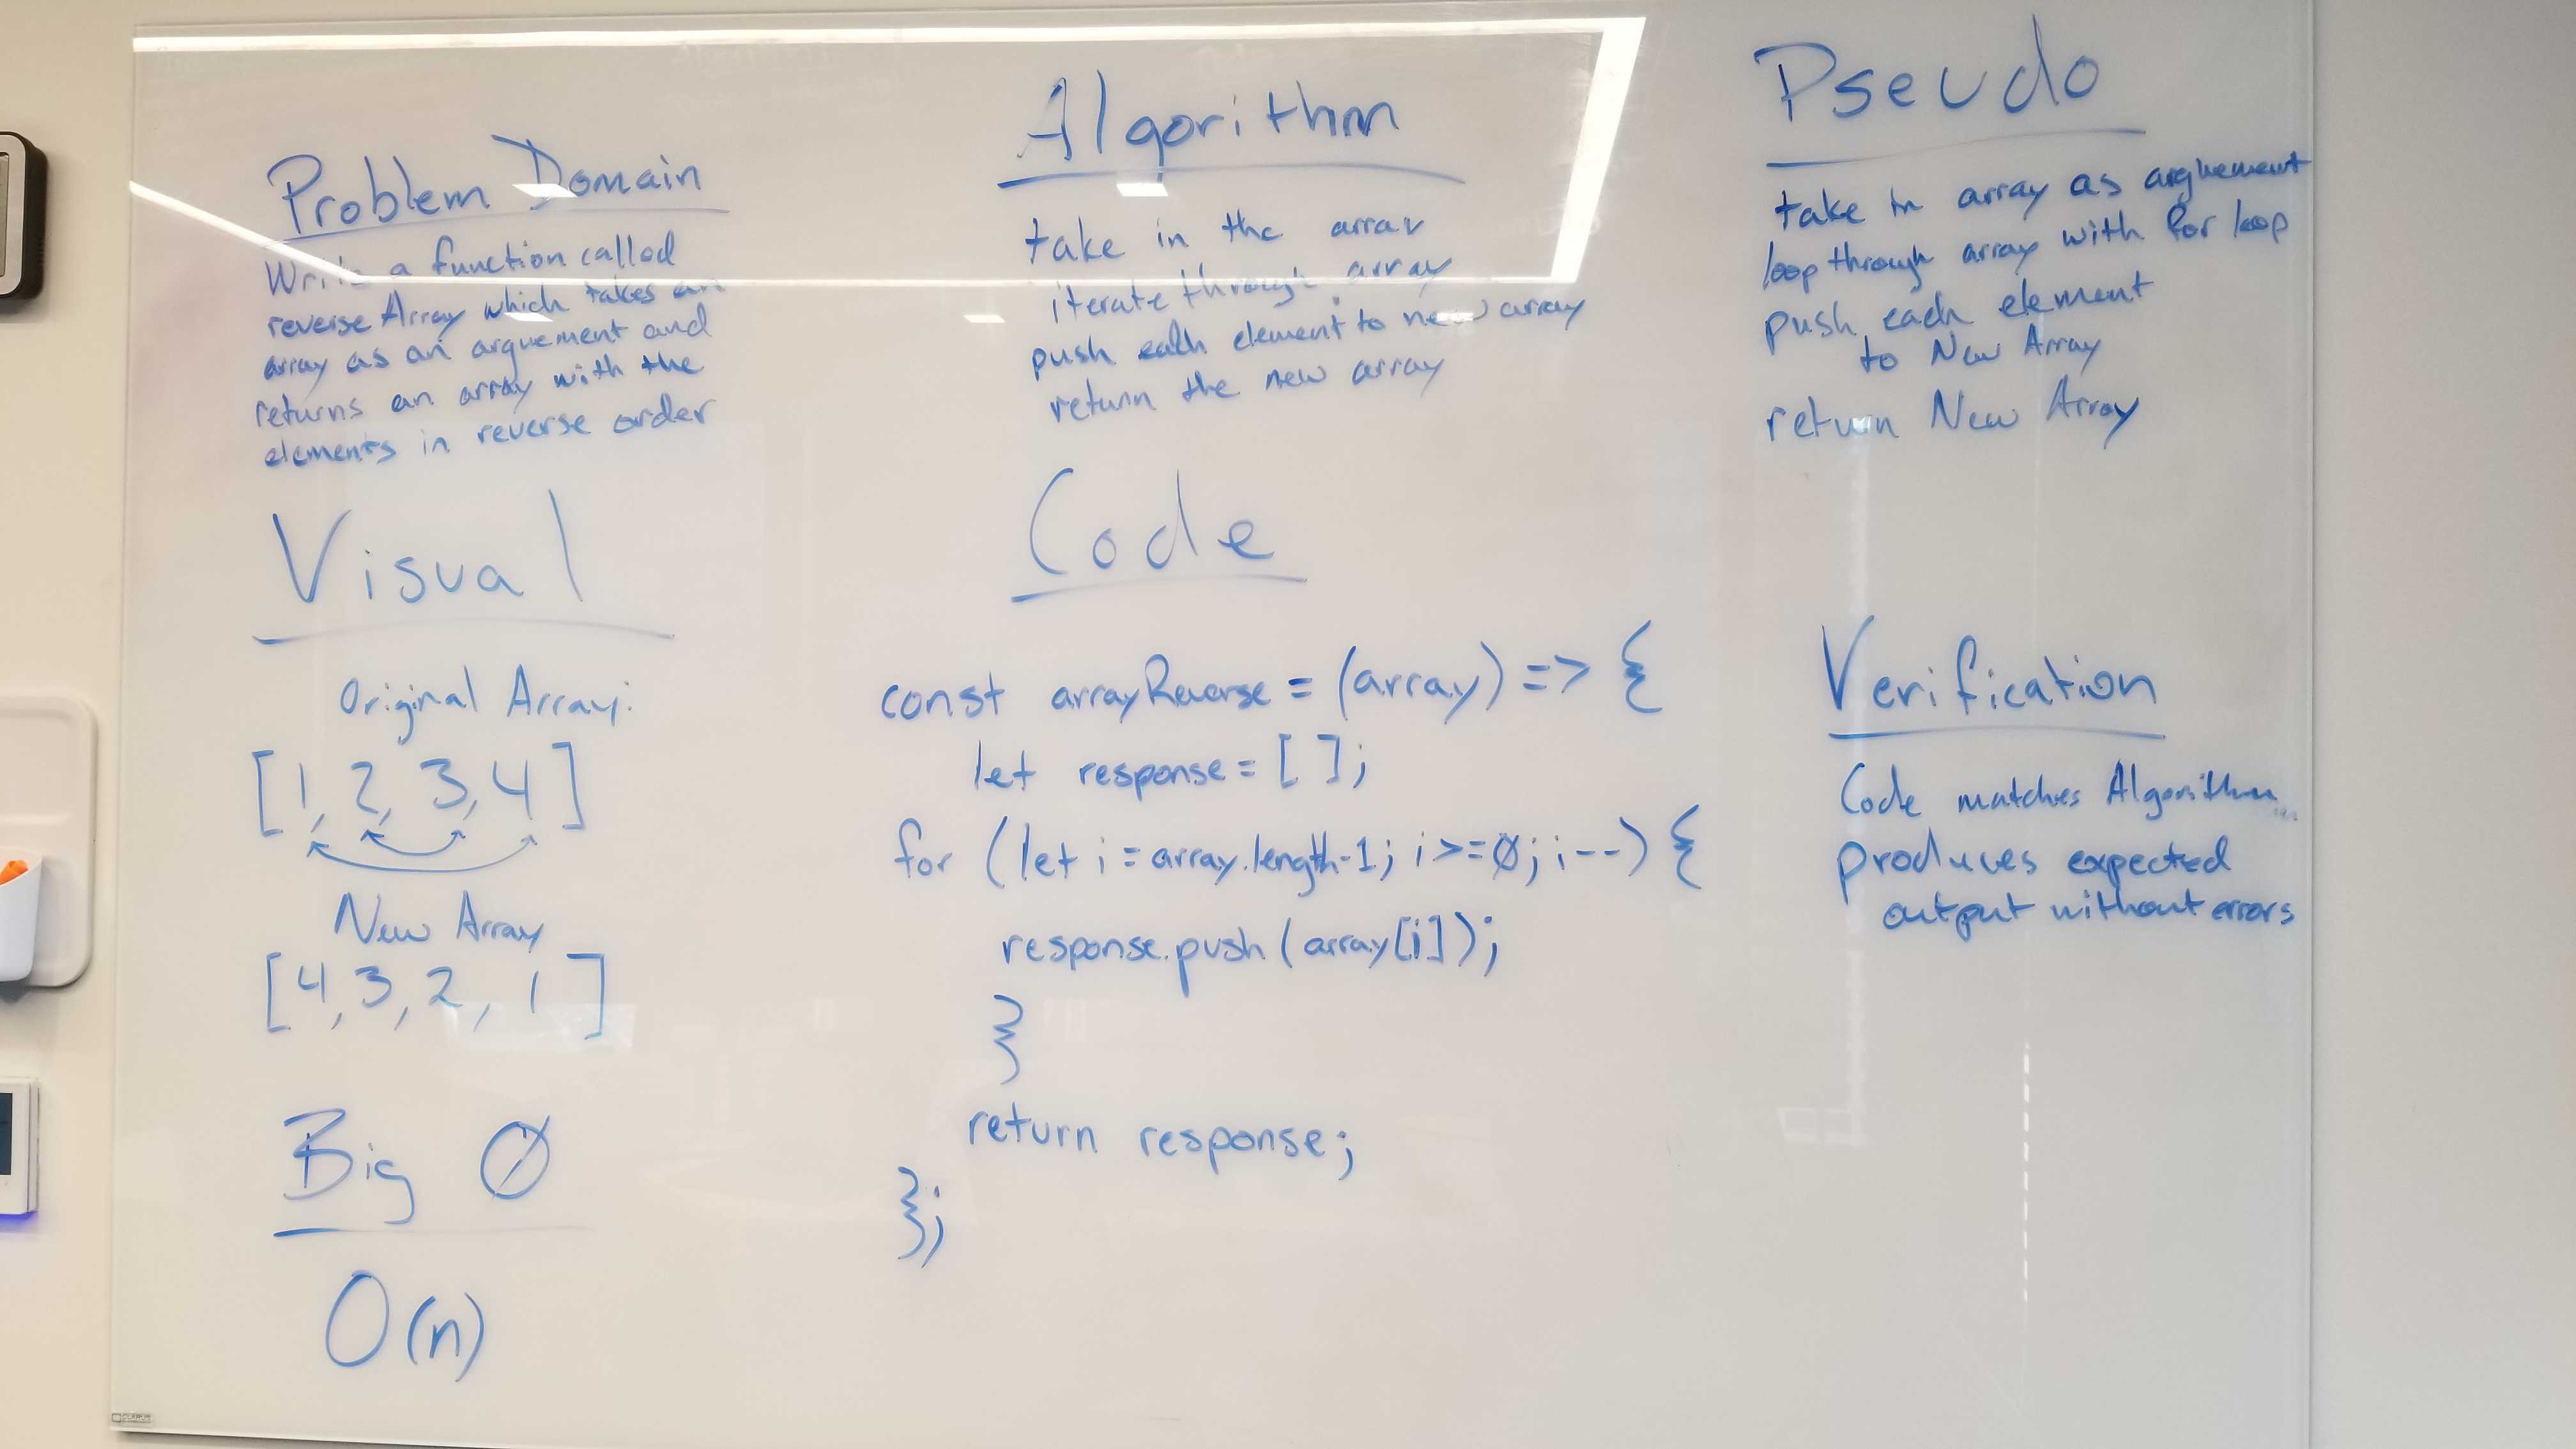 Problem Domain
Write a function called
reverse Array which takes an
array as an arguement and
returns an array with the
elements in reverse order
Visual
Original Array:
[1, 2, 3, 4]
New Array
[4, 3, 2, 1]
Big Ø
O(n)
Algorithm
take in the array
iterate through array
push each element to new array
return the new array
Code
const arrayReverse = (array) => {
let response = [ ];
for (let i = array.length-1; i >= Ø; i--) {
response.push (array[i]);
}
return response;
};
Pseudo
take in array as arguement
loop through array with for loop
push each element
to New Array
return New Array
Verification
Code matches Algorithm
produces expected
output without errors